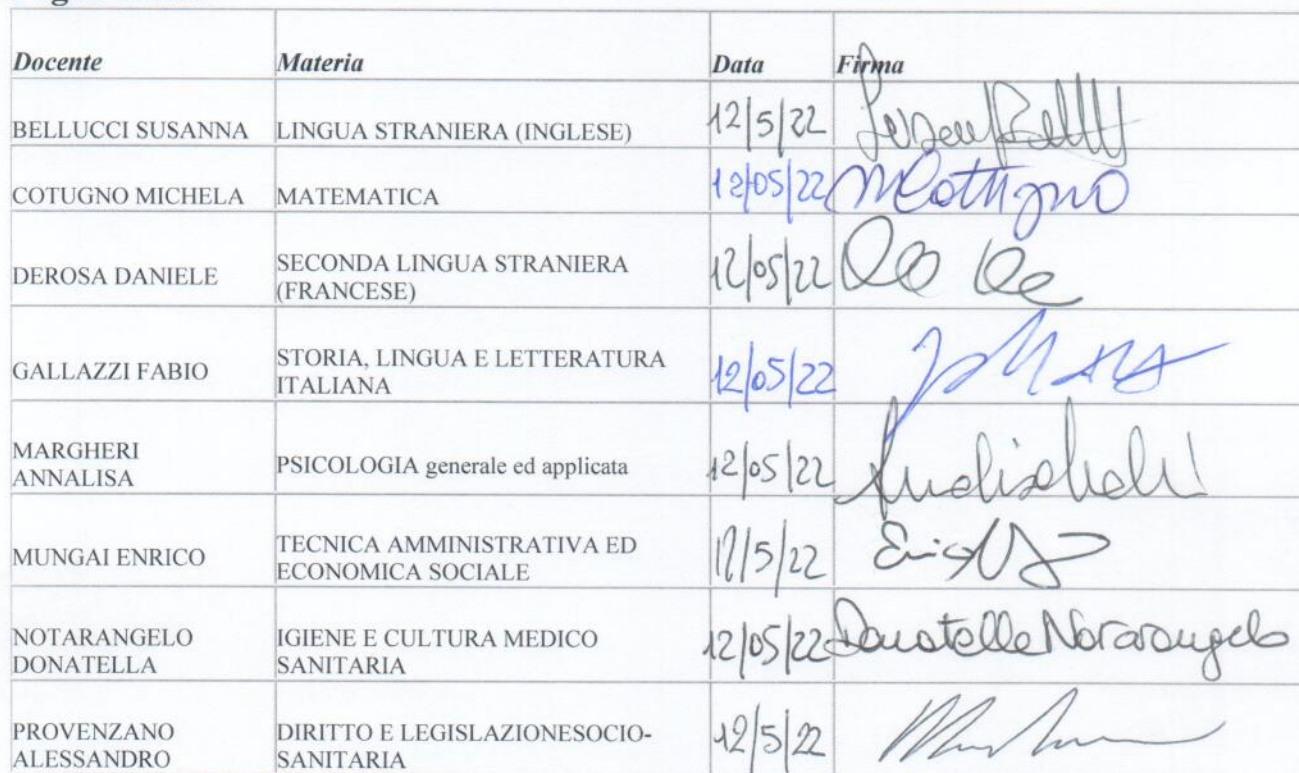 Docente Materia Data Firma
BELLUCCI SUSANNA LINGUA STRANIERA (INGLESE) 12/5/22
COTUGNO MICHELA MATEMATICA 12/05/22 MCotugno
DEROSA DANIELE SECONDA LINGUA STRANIERA
(FRANCESE) 12/05/22
GALLAZZI FABIO STORIA, LINGUA E LETTERATURA
ITALIANA 12/05/22
MARGHERI
ANNALISA PSICOLOGIA generale ed applicata 12/05/22
MUNGAI ENRICO TECNICA AMMINISTRATIVA ED
ECONOMICA SOCIALE 12/5/22
NOTARANGELO
DONATELLA IGIENE E CULTURA MEDICO
SANITARIA 12/05/22 Donatella Notarangelo
PROVENZANO
ALESSANDRO DIRITTO E LEGISLAZIONESOCIO-
SANITARIA 12/5/22